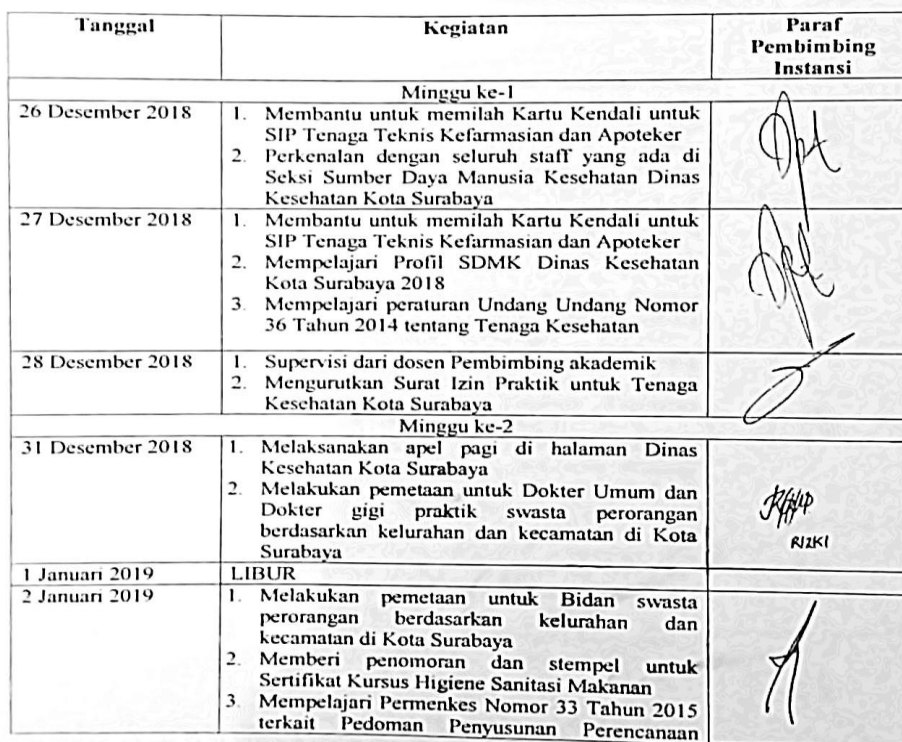 Tanggal
Kegiatan
Paraf
Pembimbing
Instansi
Minggu ke-1
26 Desember 2018
1. Membantu untuk memilah Kartu Kendali untuk
SIP Tenaga Teknis Kefarmasian dan Apoteker
2. Perkenalan dengan seluruh staff yang ada di
Seksi Sumber Daya Manusia Kesehatan Dinas
Kesehatan Kota Surabaya
27 Desember 2018
1. Membantu untuk memilah Kartu Kendali untuk
SIP Tenaga Teknis Kefarmasian dan Apoteker
2. Mempelajari Profil SDMK Dinas Kesehatan
Kota Surabaya 2018
3. Mempelajari peraturan Undang Undang Nomor
36 Tahun 2014 tentang Tenaga Kesehatan
28 Desember 2018
1. Supervisi dari dosen Pembimbing akademik
2. Mengurutkan Surat Izin Praktik untuk Tenaga
Kesehatan Kota Surabaya
Minggu ke-2
31 Desember 2018
1. Melaksanakan apel pagi di halaman Dinas
Kesehatan Kota Surabaya
2. Melakukan pemetaan untuk Dokter Umum dan
Dokter gigi praktik swasta perorangan
berdasarkan kelurahan dan kecamatan di Kota
Surabaya
RIZKI
1 Januari 2019
LIBUR
2 Januari 2019
1. Melakukan pemetaan untuk Bidan swasta
perorangan berdasarkan kelurahan dan
kecamatan di Kota Surabaya
2. Memberi penomoran dan stempel untuk
Sertifikat Kursus Higiene Sanitasi Makanan
3. Mempelajari Permenkes Nomor 33 Tahun 2015
terkait Pedoman Penyusunan Perencanaan